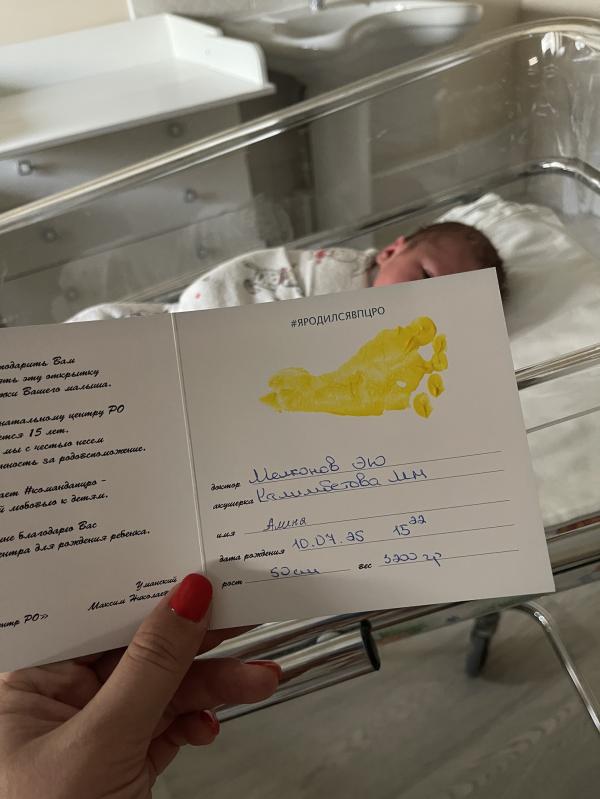 подарить Вам
эту открытку
Вашего малыша.
натальному центру РО
ется 15 лет.
мы с честью несем
нность за родовспоможение.
ает #командапцро -
любовью к детям.
благодарю Вас
ентра для рождения ребенка.
Уманский
Максим Николаев
нтр РО»
#ЯРОДИЛСЯВПЦРО
доктор Мелконов ЭЮ
акушерка Калимбетова МН
имя
дата рождения 10.07.25 15 22
рост 50 см вес 3200 гр